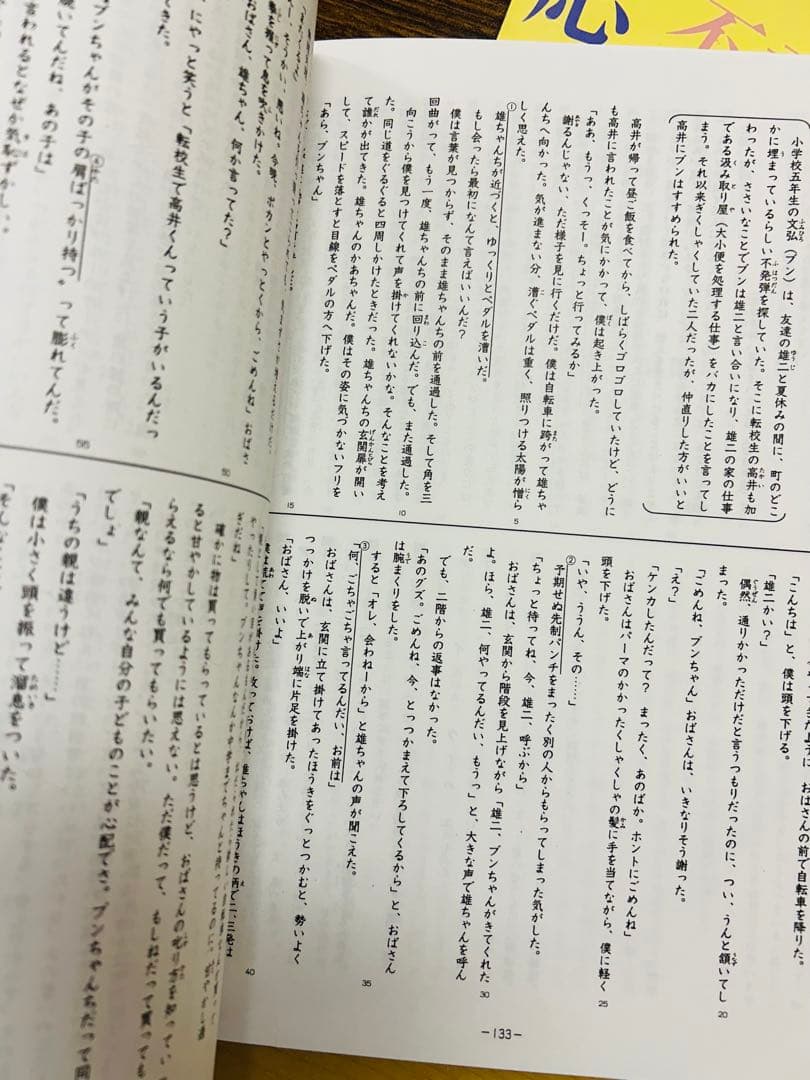 小学校五年生の文弘(ブン)は、友達の雄二と夏休みの間に、町のどこ
かに埋まっているらしい不発弾を探していた。そこに転校生の高井も加
わったが、ささいなことでブンは雄二と言い合いになり、雄二の家の仕事
である汲み取り屋(大小便を処理する仕事)をバカにしたことを言ってし
まう。それ以来ぎくしゃくしていた二人だったが、仲直りした方がいいと
高井にブンはすすめられた。
高井が帰って昼ご飯を食べてから、しばらくゴロゴロしていたけど、どうに
も高井に言われたことが気にかかって、僕は起き上がった。
「ああ、もうっ、くっそー。ちょっと行ってみるか」
謝るんじゃない、ただ様子を見に行くだけだ。僕は自転車に跨がって雄ちゃ
んちへ向かった。気が進まない分、漕ぐペダルは重く、照りつける太陽が憎ら
しく思えた。
①雄ちゃんちが近づくと、ゆっくりとペダルを漕いだ。
もし会ったら最初になんて言えばいいんだ?
僕は言葉が見つからず、そのまま雄ちゃんちの前を通過した。そして角を三
回曲がって、もう一度、雄ちゃんちの前に回り込んだ。でも、また通過した。
向こうから僕を見つけてくれて声を掛けてくれないかな。そんなことを考え
た。同じ道をぐるぐると四周しかけたときだった。雄ちゃんちの玄関扉が開い
て誰かが出てきた。雄ちゃんのかあちゃんだ。僕はその姿に気づかないフリを
して、スピードを落とすと目線をペダルの方へ下げた。
「あら、ブンちゃん」
おばさんの前で自転車を降りた。
「こんちは」と、僕は頭を下げる。
「雄二かい?」
偶然、通りかかっただけだと言うつもりだったのに、つい、うんと頷いてし
まった。
「ごめんね、ブンちゃん」おばさんは、いきなりそう謝った。
「え?」
「ケンカしたんだって? まったく、あのばか。ホントにごめんね」
おばさんはパーマのかかったくしゃくしゃの髪に手を当てながら、僕に軽く
頭を下げた。
「いや、ううん、その……」
②予期せぬ先制パンチをまったく別の人からもらってしまった気がした。
「ちょっと待ってね、今、雄二、呼ぶから」
おばさんは、玄関から階段を見上げながら「雄二、ブンちゃんがきてくれた
よ。ほら、雄二、何やってるんだい、もうっ」と、大きな声で雄ちゃんを呼ん
だ。
でも、二階からの返事はなかった。
「あのグズ。ごめんね、今、とっつかまえて下ろしてくるから」と、おばさん
は腕まくりをした。
すると「オレ、会わねーから」と雄ちゃんの声が聞こえた。
③「何、ごちゃごちゃ言ってるんだい、お前は」
おばさんは、玄関に立て掛けてあったほうきをぐっとつかむと、勢いよく
つっかけを脱いで上がり端に片足を掛けた。
「おばさん、いいよ」
5
10
15
20
25
30
35
－133－
おばさん、雄ちゃん、何か言ってた?」
にやっと笑うと「転校生で高井くんっていう子がいるんだっ
てきた。
④ブンちゃんがその子の肩ばっかり持つ〟って膨れてんだ。
いてんだね、あの子は」
言われるとなぜか気恥ずかし
50
55
確かに物は買ってもらっているとは思うけど、おばさんの
ると甘やかしているようには思えない。ただ僕だって、もし
らえるなら何でも買ってもらいたい。
「親なんて、みんな自分の子どものことが心配でさ。ブンちゃんちだって同
でしょ」
「うちの親は違うけど……」
僕は小さく頭を振って溜息をついた。
40